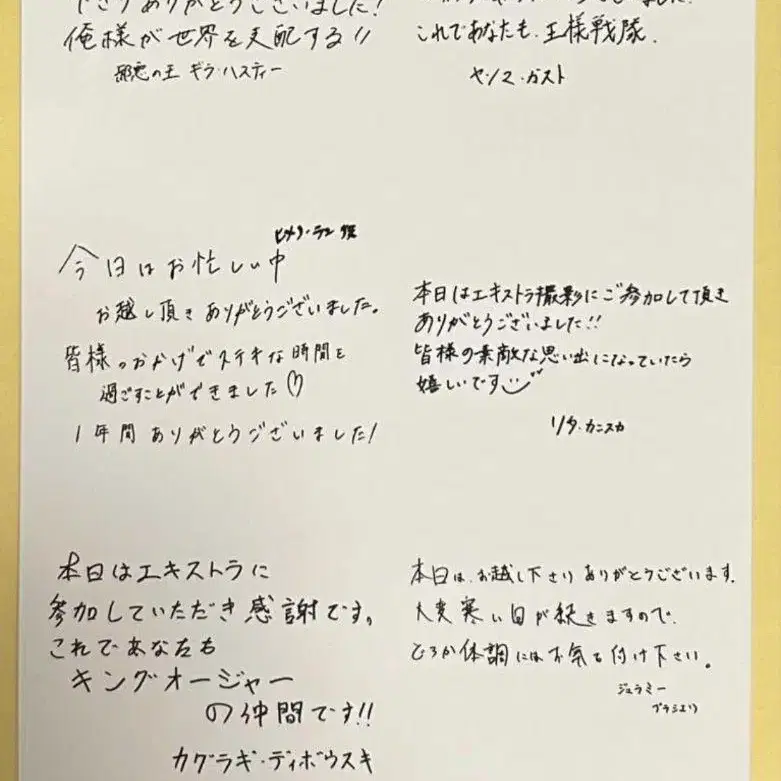 下さりありがとうございました!
俺様が世界を支配する!!
邪悪の王 ギラ・ハスティー
これであなたも、王様戦隊.
ヤンマ・ガスト
ヒメノ・ラン役
今日はお忙しい中
お越し頂きありがとうございました。
皆様のおかげでステキな時間を
過ごすことができました♡
1年間ありがとうございました!
本日はエキストラ撮影にご参加して頂き
ありがとうございました!!
皆様の素敵な思い出になっていたら
嬉しいです
リタ・カニスカ
本日はエキストラに
参加していただき感謝です。
これであなたも
キングオージャー
の仲間です!!
カグラギ・ディボウスキ
本日は、お越し下さりありがとうございます.
大変寒い日が続きますので、
どうか体調にはお気を付け下さい。
ジェラミー
ブラシエリ